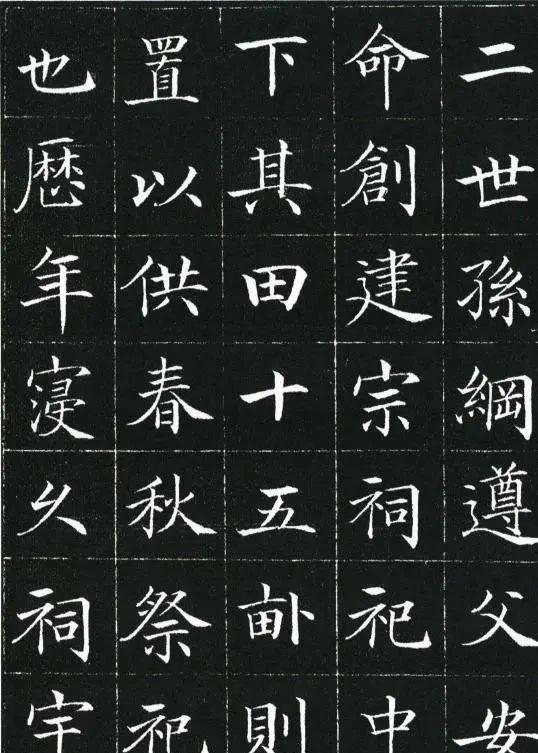 二世孫綱遵父安
命創建宗祠祀中
下其田十五畝則
置以供春秋祭祀
也歷年寖久祠宇